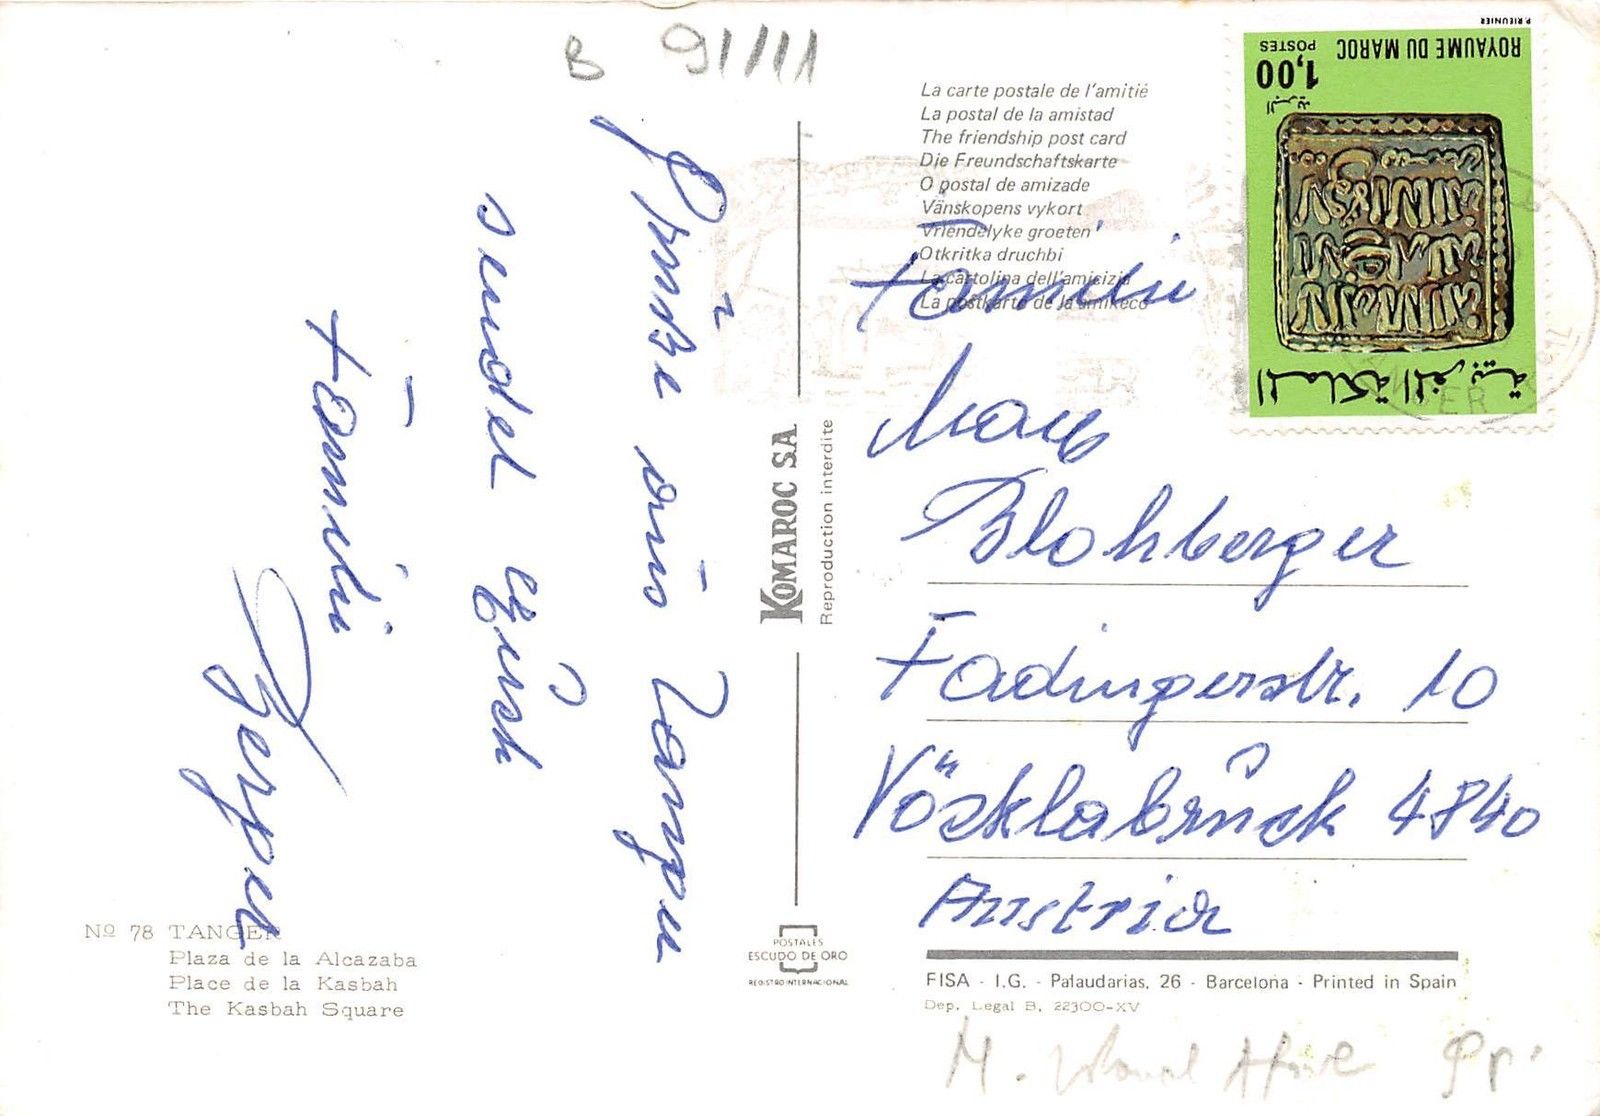 B 91/111
Grüße aus Tanger
sendet Euch
Familie
La carte postale de l'amitié
La postal de la amistad
The friendship post card
Die Freundschaftskarte
O postal de amizade
Vänskopens vykort
Vriendelyke groeten
Otkritka druchbi
La cartolina dell'amicizia
La postkarto de la amikeco
P. RIEUNIER
ROYAUME DU MAROC
POSTES
1,00
البريد
المملكة المغربية
Familie
Blohberger
Fadingerstr. 10
Vöcklabruck 4840
Austria
KOMAROC S.A.
Reproduction interdite
Nº 78 TANGER
Plaza de la Alcazaba
Place de la Kasbah
The Kasbah Square
POSTALES
ESCUDO DE ORO
REGISTRO INTERNACIONAL
FISA - I.G. - Palaudarias, 26 - Barcelona - Printed in Spain
Dep. Legal B. 22300-XV